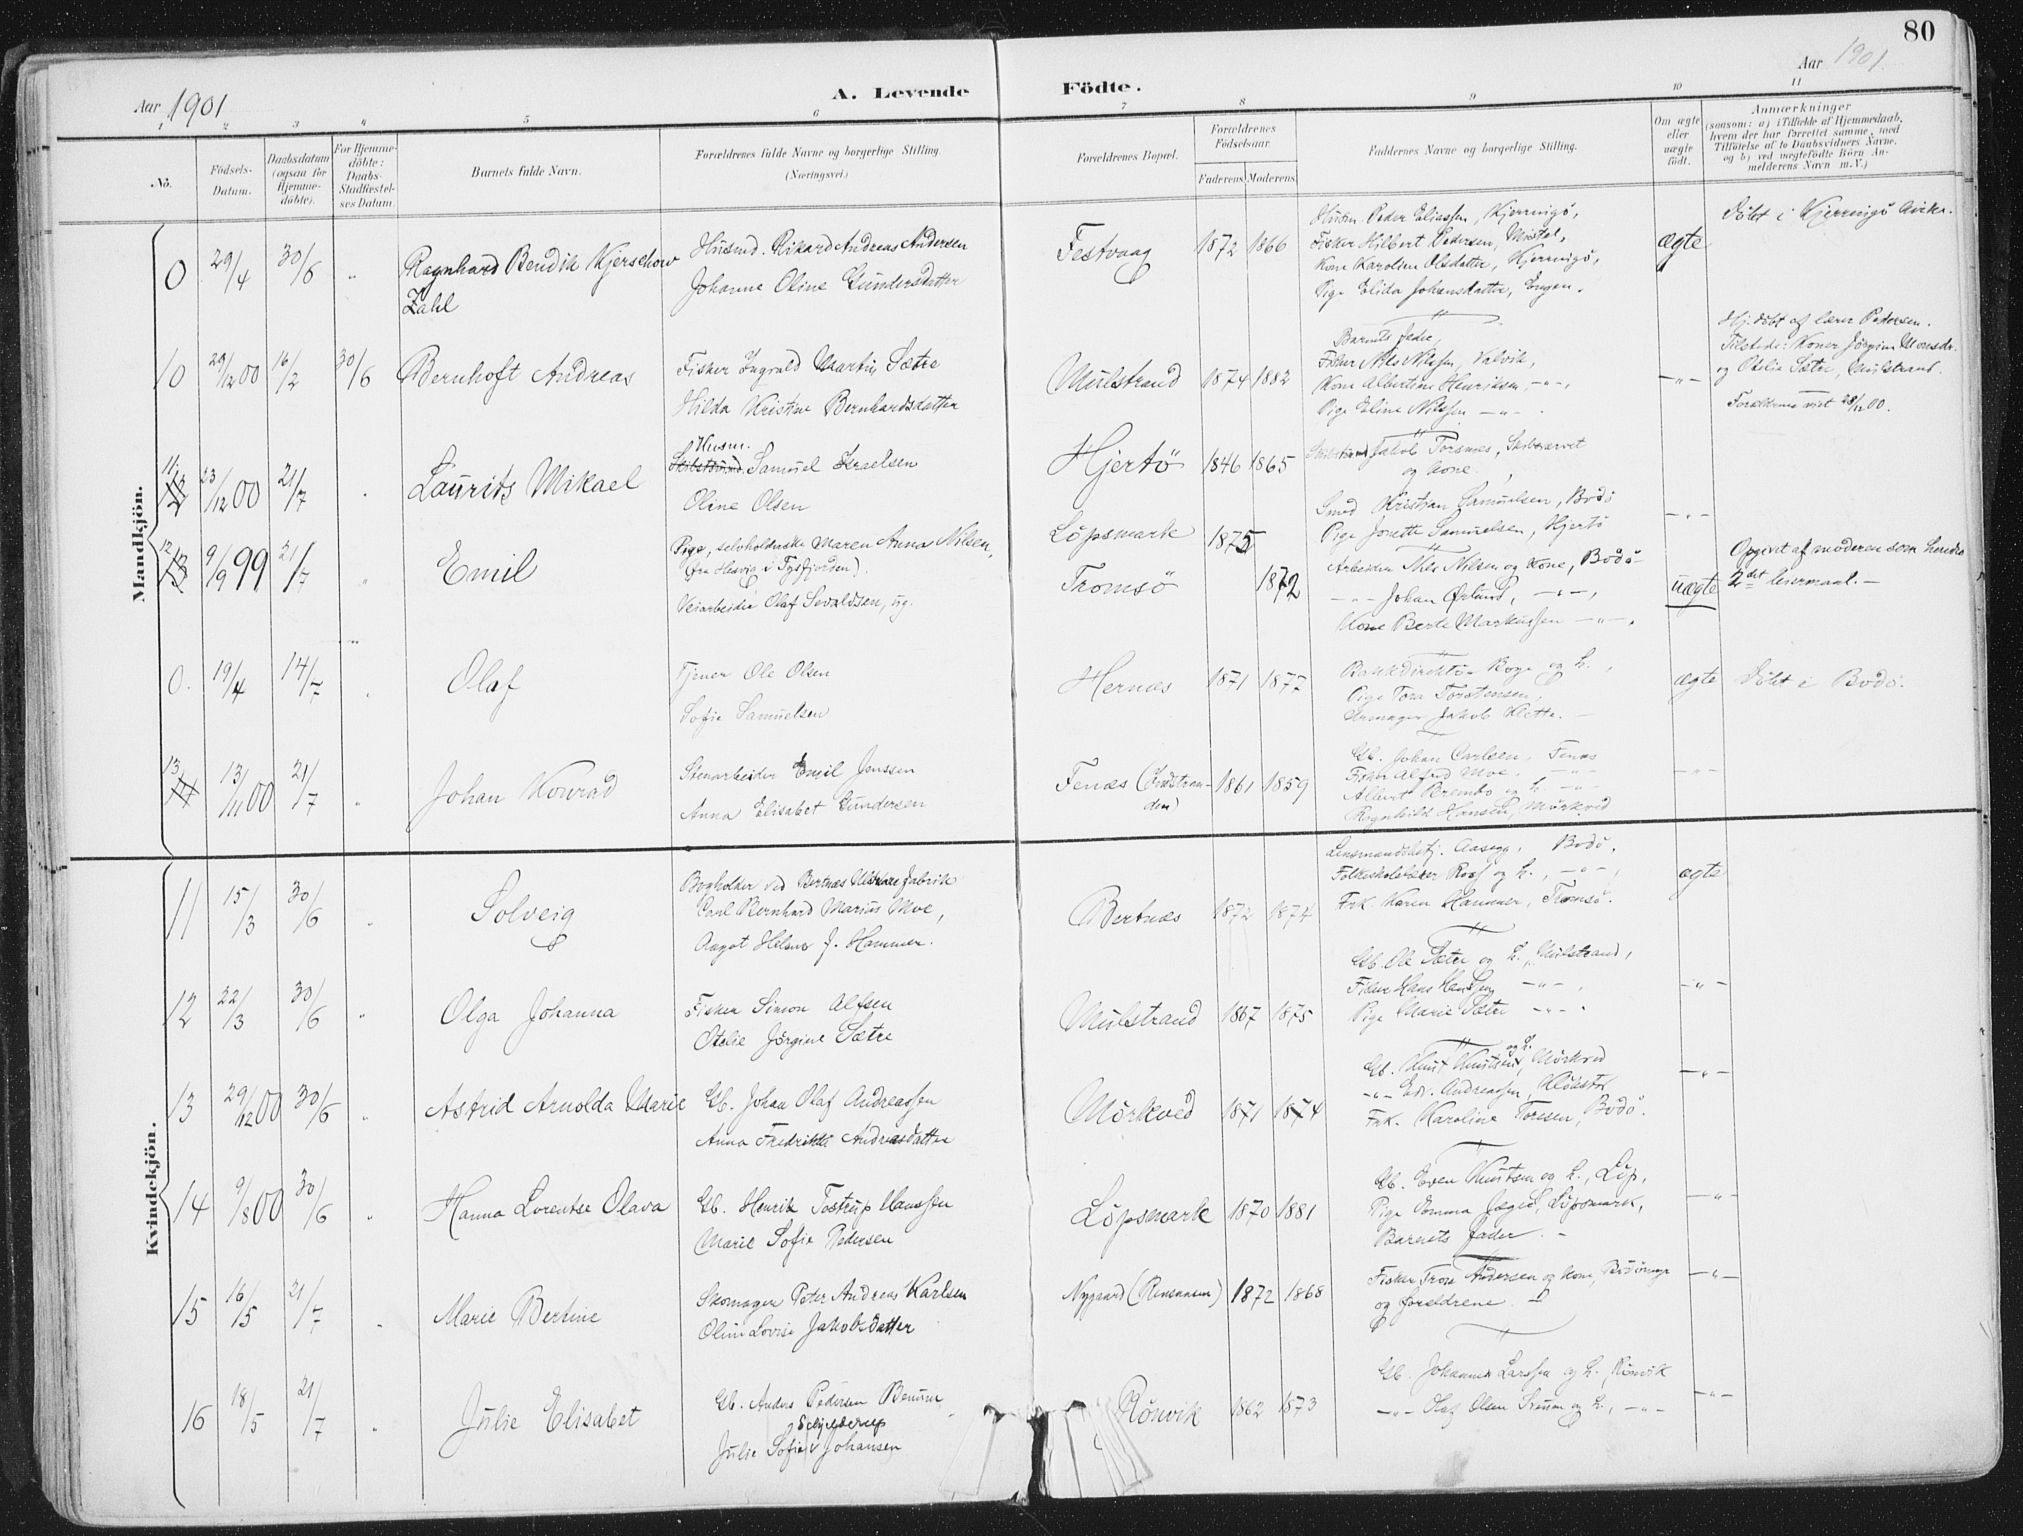 80
Aar 1901
A. Levende Födte.
Aar 1901.
1 2 3 4 5 6 7 8 9 10 11
No.
Födsels-Datum.
Daabsdatum (ogsaa for Hjemme-döbte).
For Hjemme-döbte: Daabs-Stadfæstel-ses Datum.
Barnets fulde Navn.
Forældrenes fulde Navne og borgerlige Stilling.
(Næringsvei.)
Forældrenes Bopæl.
Forældrenes Födselsaar.
Faderens. Moderens.
Faddernes Navne og borgerlige Stilling.
Om ægte eller uægte födt.
Anmærkninger
(saasom: a) i Tilfælde af Hjemmedaab, hvem der har forrettet samme, med Tilföielse af to Daabsvidners Navne, og b) ved uægtefödte Börn An-melderens Navn m. V.)
Mandkjön.
0 29/4 30/6 " Ragnhard Bendik Kjerschow Zahl
Husmd. Rikard Andreas Andersen
Johanne Oline Gundersdatter
Festvaag 1872 1866
Peder Eliassen, Kjerringö,
Fisker Hilbert Pedersen, Mistel,
Kone Karoline Olsdatter, Kjerringö,
Pige Elida Johansdatter, Engen.
ægte
Döbt i Kjerringö
10 29/12 00 16/2 30/6 Bernhoft Andreas
Fisker Ingvald Martin Sætre
Hilda Kristine Bernhardsdatter
Mulstrand 1874 1882
Barnets fader,
Fisker Nils Nilssen, Valvik,
Kone Albertine Henriksen, -"-,
Pige Eline Nilssen -"-.
-"-
Hj.döbt af lærer Pedersen.
Tilstede: Koner Jörgine Monsdr.
og Otelie Sætre, Mulstrand.
Forældrene viet 28/12 00.
11. 23/12 00 21/7 " Laurits Mikael
Husm.
Samuel Israelsen
Oline Olsen
Hjertö 1846 1865
Jakob Torsnes, Skibstærvet
og kone.
Smed Kristian Samuelsen, Bodö
Pige Jonette Samuelsen, Hjertö
-"-
12 13 9/9 99 21/7 " Emil
Pige, selvholderske Maren Anna Nilsen,
(fra Hesvig i Tysfjorden).
Veiarbeider Olaf Sevaldsen, ug.
Löpsmark 1875
Tromsö 1872
Arbeider Nils Nilsen og kone, Bodö
-"- Johan Örlund, -"-,
Kone Berte Markussen -"-.
uægte
Opgivet af moderen som hendes
2det leiermaal.-
0. 19/4 14/7 " Olaf
Tjener Ole Olsen
Sofie Samuelsen
Hernæs 1871 1877
Bankdirektör Boye og h.,
Pige Tora Torstensen,
Urmager Jakob Klette.
ægte
Döbt i Bodö.
13 13/11 00 21/7 " Johan Konrad
Stenarbeider Emil Jenssen
Anna Elisabet Gundersen
Fenæs (Indstran-den) 1861 1859
Gb. Johan Carlsen, Fenæs
Fisker Alfred Moe, -"-
Albert Brembo og h. -"-
Ragnhild Hansen, Mörkved
-"-
Kvindekjön.
11 15/3 30/6 " Solveig
Bogholder ved Bertnæs fabrik
Carl Bernhard Marius Moe,
Aagot Helene J. Hammer.
Bertnæs 1872 1874
Lensmandsbetj. Aasegg, Bodö,
Folkeskolelærer Roos og h., -"-,
Frk. Karen Hammer, Tromsö.
ægte
12 22/3 30/6 " Olga Johanna
Fisker Simon Alfsen
Otelie Jörgine Sætre
Mulstrand 1867 1875
Gb. Ole Sætre og h., Mulstrand,
Fisker Hans Hanssen -"-,
Pige Marie Sætre -"-.
-"-
13 29/12 00 30/6 " Astrid Arnolda Marie
Gb. Johan Olaf Andreassen
Anna Fredrikke Andreasdatter
Mörkved 1871 1874
Gb. Knut Knutsen og h., Mörkved
-"- Edv. Andreassen, Klökstad
Frk. Karoline Toresen, Bodö.
-"-
14 9/8 00 30/6 " Hanna Lorentse Olava
Gb. Henrik Tostrup Hanssen
Marie Sofie Pedersen
Löpsmark 1870 1881
Gb. Even Knutsen og h., Löp,
Pige Emma Jægtö, Löpsmark,
Barnets fader. -
-"-
15 16/5 21/7 " Marie Bertine
Skomager Peter Andreas Karlsen
Oline Lovise Jakobsdatter
Nygaard (Rensaasen) 1872 1868
Fisker Tron Andersen og kone, Bodömyr
og forældrene.
-"-
16 18/5 21/7 " Julie Elisabet
Gb. Anders Pedersen Benum
Schjelderup
Julie Sofie Johansen
Rönvik 1862 1873
Gb. Johannes Larssen og h. Rönvik
-"- Olaf Olsen Straum og h., -"-
-"-